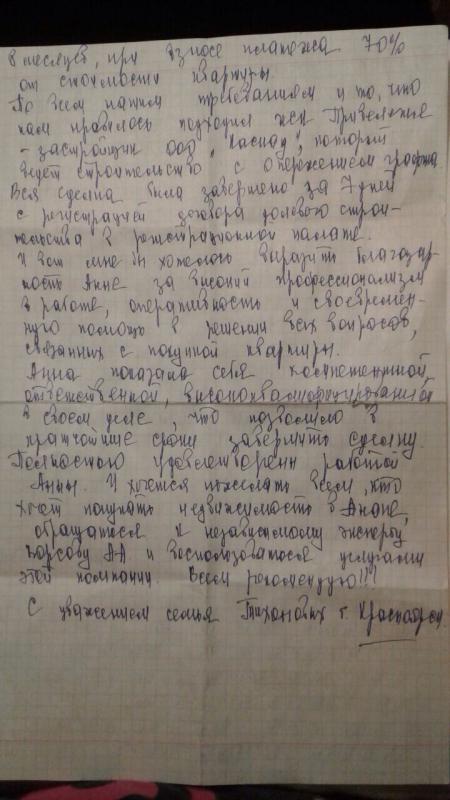 8 месяцев, при взносе платежа 70%
от стоимости квартиры.
По всем нашим требованиям и то, что
нам нравилось подходил ЖК Привилегия
- застройщик ООО "Каскад", который
ведет строительство с опережением графика
Вся сделка была завершено за 7 дней
с регистрацией договора долевого строи-
тельства в регистрационной палате.
И вот мне бы хотелось выразить благодар-
ность Анне за высокий профессионализм
в работе, оперативность и своевремен-
ную помощь в решении всех вопросов,
связанных с покупкой квартиры.
Анна показала себя компетентной,
ответственной, высококвалифицированной
в своем деле, что позволило в
кратчайшие сроки завершить сделку.
Полностью удовлетворены работой
Анны. И хочется пожелать всем, кто
хочет покупать недвижимость в Анапе,
обращаться к независимому эксперту
АА и воспользоваться услугами
этой компании. Всем рекомендую!!!
С уважением семья Тихоновых г. Красноярск